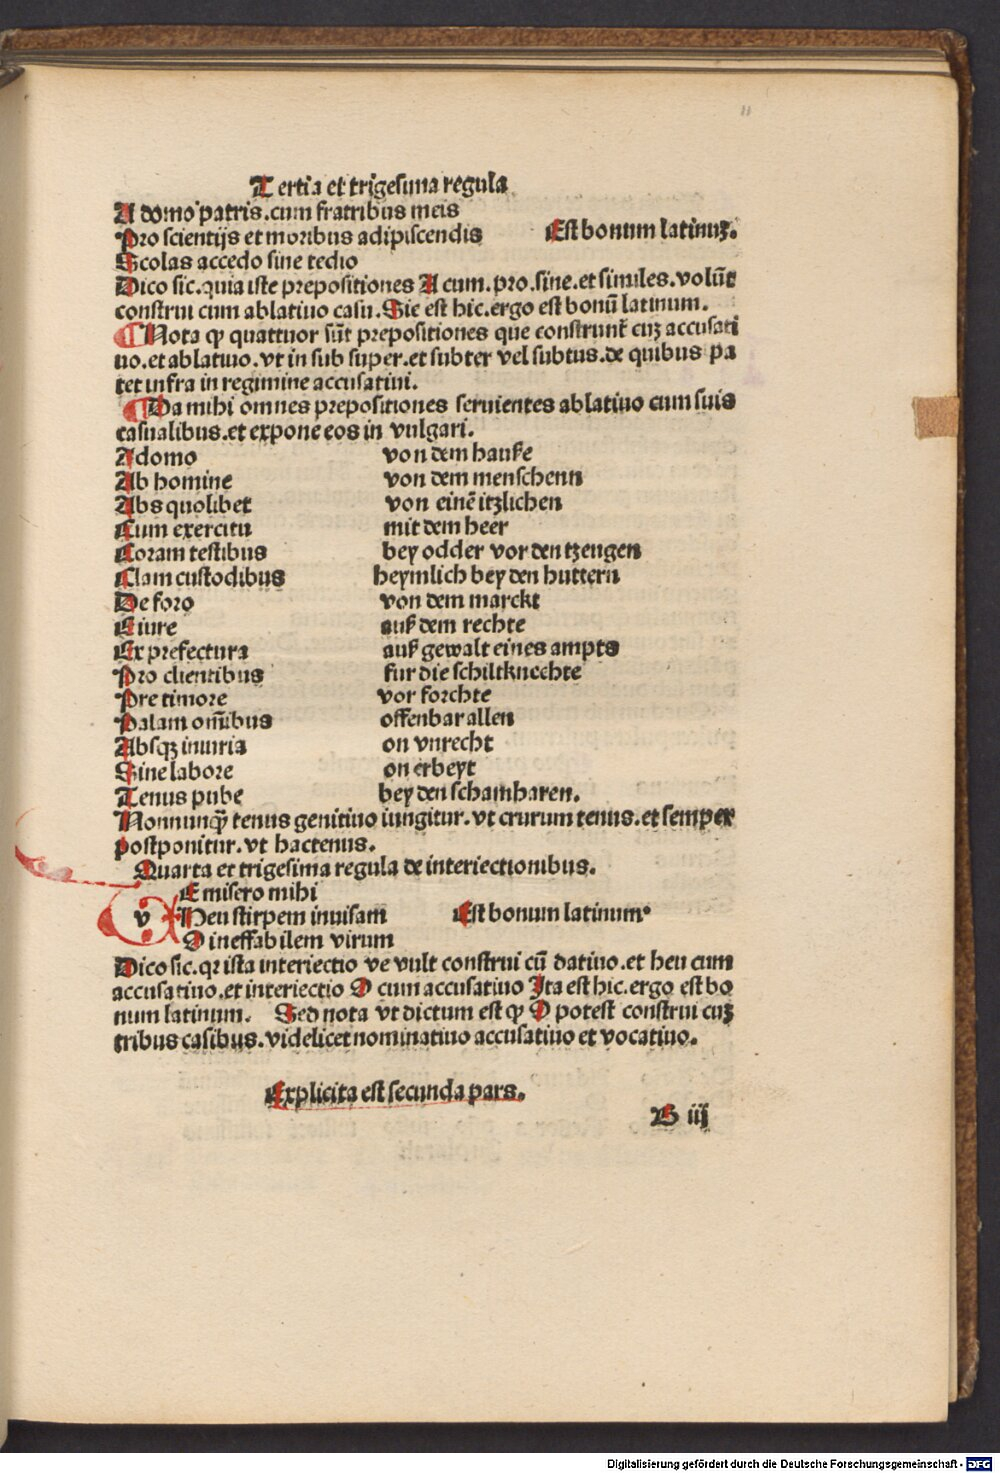 11
Tertia et trigesima regula
A domo patris.cum fratribus meis
Pro scientijs et moribus adipiscendis Est bonum latinuꝫ.
Scolas accedo sine tedio
Dico sic.quia iste prepositiones A cum.pro.sine.et similes.volūt
construi cum ablatiuo casu.Sic est hic.ergo est bonū latinum.
¶ Nota ꝙ quattuor sūt prepositiones que construunt᷑ cuꝫ accusati
uo.et ablatiuo.vt in sub super.et subter vel subtus.de quibus pa
tet infra in regimine accusatiui.
¶ Da mihi omnes prepositiones seruientes ablatiuo cum suis
casualibus.et expone eos in vulgari.
A domo von dem hauße
Ab homine von dem menschenn
Abs quolibet von einē itzlichen
Cum exercitu mit dem heer
Coram testibus bey odder vor den tzeugen
Clam custodibus heymlich bey den huttern
De foro von dem marckt
E iure auß dem rechte
Ex prefectura auß gewalt eines ampts
Pro clientibus fur die schiltknechte
Pre timore vor forchte
Palam om̄ibus offenbar allen
Absqꝫ iniuria on vnrecht
Sine labore on erbeyt
Tenus pube bey den schamharen.
Nonnunq̄ tenus genitiuo iungitur.vt crurum tenus.et semper
postponitur.vt hactenus.
Quarta et trigesima regula de interiectionibus.
v E misero mihi
Heu stirpem inuisam Est bonum latinum.
O ineffabilem virum
Dico sic.qꝛ ista interiectio ve vult construi cū datiuo.et heu cum
accusatiuo.et interiectio O cum accusatiuo Ita est hic.ergo est bo
num latinum. Sed nota vt dictum est ꝙ O potest construi cuꝫ
tribus casibus.videlicet nominatiuo accusatiuo et vocatiuo.
Explicita est secunda pars.
B iij
Digitalisierung gefördert durch die Deutsche Forschungsgemeinschaft - DFG